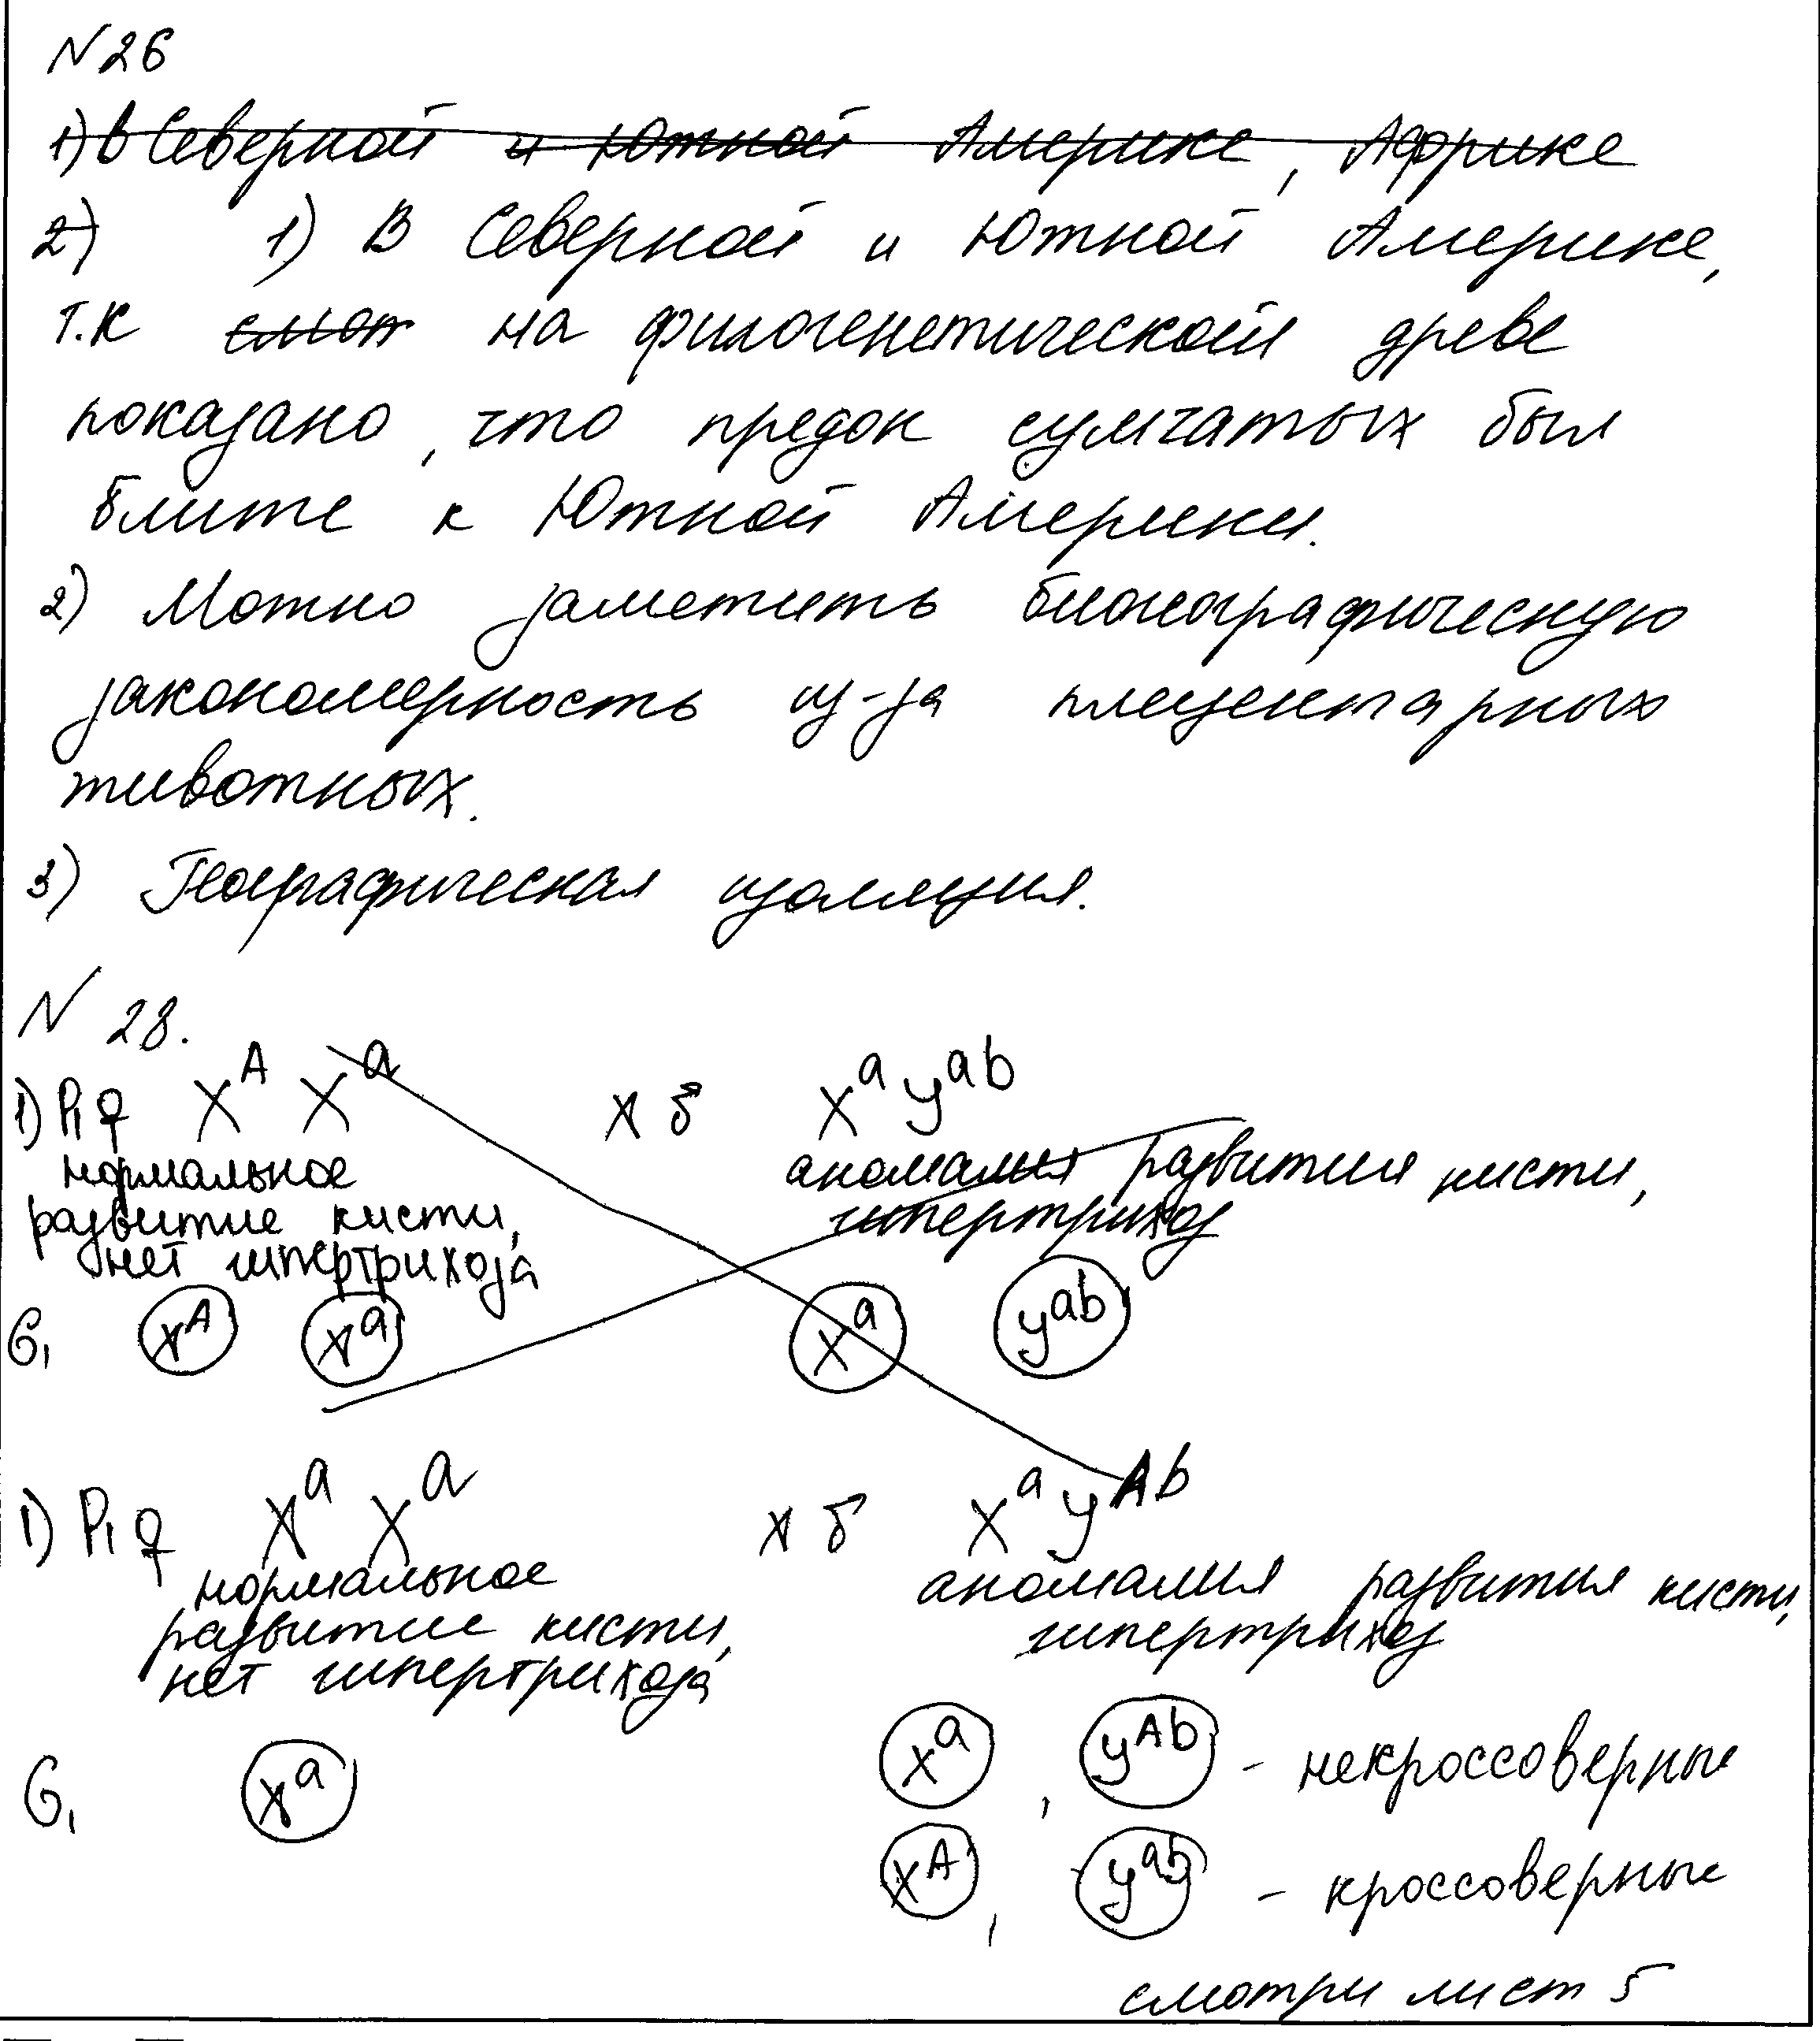 N 26
1) В Северной и Южной Америке, Африке
2) 1) В Северной и Южной Америке,
т.к смот на филогенетической древе
показано, что предок сумчатых был
ближе к Южной Америки.
2) Можно заметить биогеографическую
закономерность из-за плацентарных
животных.
3) Географическая изоляция.
N 28.
1) P₁ ♀ X^A X^a x ♂ X^a Y^ab
нормальное аномалия развития кисти,
развитие кисти, гипертрихоз
нет гипертрихоза
G₁ X^A X^a X^a Y^ab
1) P₁ ♀ X^a X^a x ♂ X^a Y^Ab
нормальное аномалия развития кисти,
развитие кисти, гипертрихоз
нет гипертрихоза
G₁ X^a X^a, Y^Ab - некроссоверные
X^A, Y^ab - кроссоверные
смотри лист 5